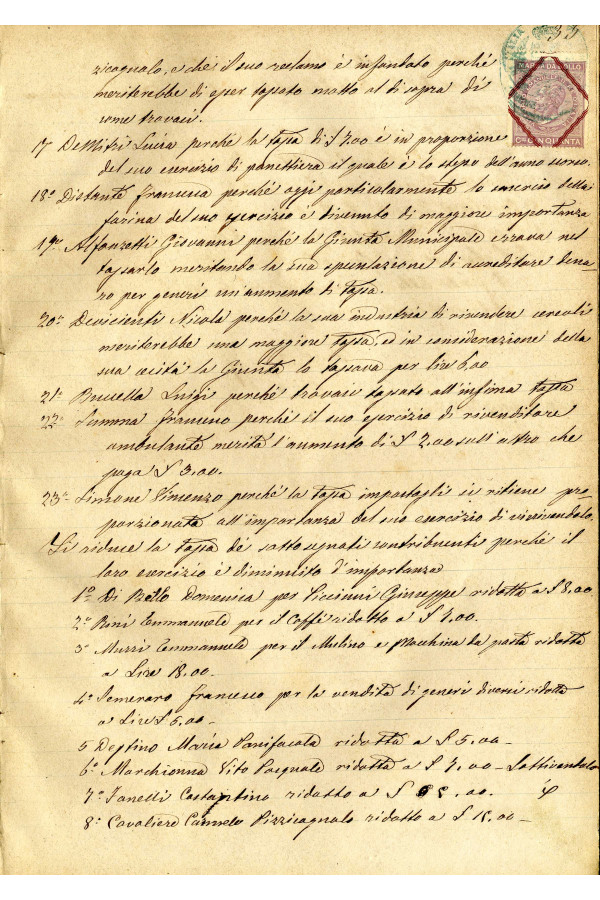 33
MARCA DA BOLLO
Cmi CINQUANTA
zicagnolo, e che il suo reclamo è infondato perché
meriterebbe di esser tassato molto al di sopra di
come trovasi.
17 De Mitri Luisa perché la tassa di £ 7.00 è in proporzione
del suo esercizio di panettiera il quale è lo stesso dell'anno scorso.
18° Distante Francesca perché oggi particolarmente lo smercio della
farina del suo esercizio è divenuto di maggiore importanza
19° Alfonzetti Giovanni perché la Giunta Municipale errava nel
tassarlo meritando la sua speculazione di accreditare dena
ro per generi un'aumento di tassa.
20° Nicola perché la sua industria di rivendere cereali
meriterebbe una maggiore tassa, ed in considerazione della
sua cecità la Giunta lo tassava per lire 6,00
21° Luigi perché trovasi tassato all'infima tassa
22° Summa Francesco perché il suo esercizio di rivenditore
ambulante merita l'aumento di £ 2.00 sull'altro che
paga £ 3.00.
23° Simone Vincenzo perché la tassa impostagli si ritiene pro
porzionata all'importanza del suo esercizio di
Si riduce la tassa dè sottosegnati contribuenti perché il
loro esercizio è diminuito d'importanza
1° Di Domenica per Giuseppe ridotta a £ 8.00.
2° Emmanuele per il Caffè ridotto a £ 7.00.
3° Muzzi Emmanuele per il Mulino e Macchina da pasta ridotta
a Lire 18.00.
4° Semeraro Francesco per la vendita di generi diversi ridotta
a Lire £ 5.00 -
5 Maria ridotta a £ 5.00 -
6° Marchionna Vito Pasquale ridotta a £ 7.00 -
7° Zanelli Costantino ridotto a £ .00.
8° Cavaliere Carmelo Pizzicagnolo ridotto a £ 15.00 -